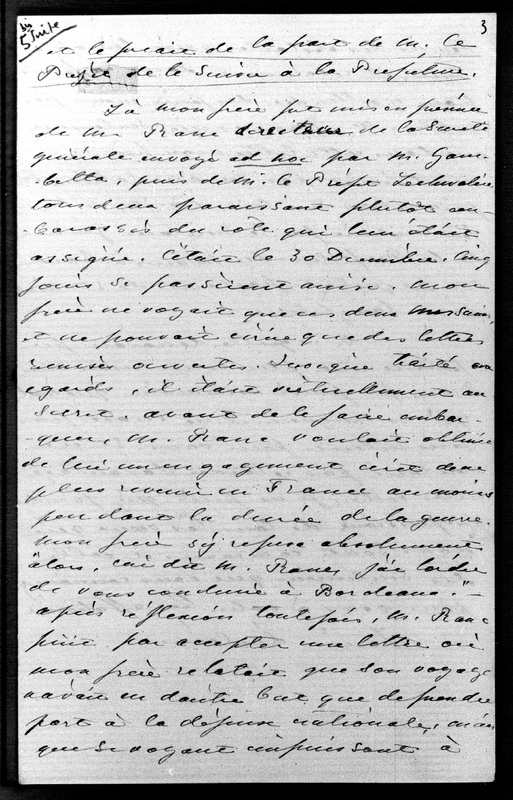 5 Suite
3
et le priait de la part de M. le
Préfet de le suivre à la Préfecture.
Là mon frère fut mis en présence
de Mr Ranc directeur de la Sureté
générale envoyé ad hoc par M. Gam-
betta, puis de M. le Préfet Lechevalier
tous deux paraissant plutôt em-
barassés du rôle qui leur était
assigné. C'était le 30 Décembre. Cinq
jours se passèrent ainsi. Mon
frère ne voyait que ces deux messieurs,
et ne pouvait écrire que des lettres
remises ouvertes. Quoique traité avec
egards, il était virtuellement au
secret. Avant de le faire embar-
quer, M. Ranc voulait obtenir
de lui un engagement écrit de ne
plus revenir en France au moins
pendant la durée de la guerre.
Mon frère s'y refusa absolument
"Alors, lui dit M. Ranc, j'ai l'ordre
de vous conduire à Bordeaux."—
Après réflexion toutefois, M. Ranc
finit par accepter une lettre où
mon frère relatait que son voyage
n'avait eu d'autre but que de prendre
part à la défense nationale, mais
que se voyant impuissant à